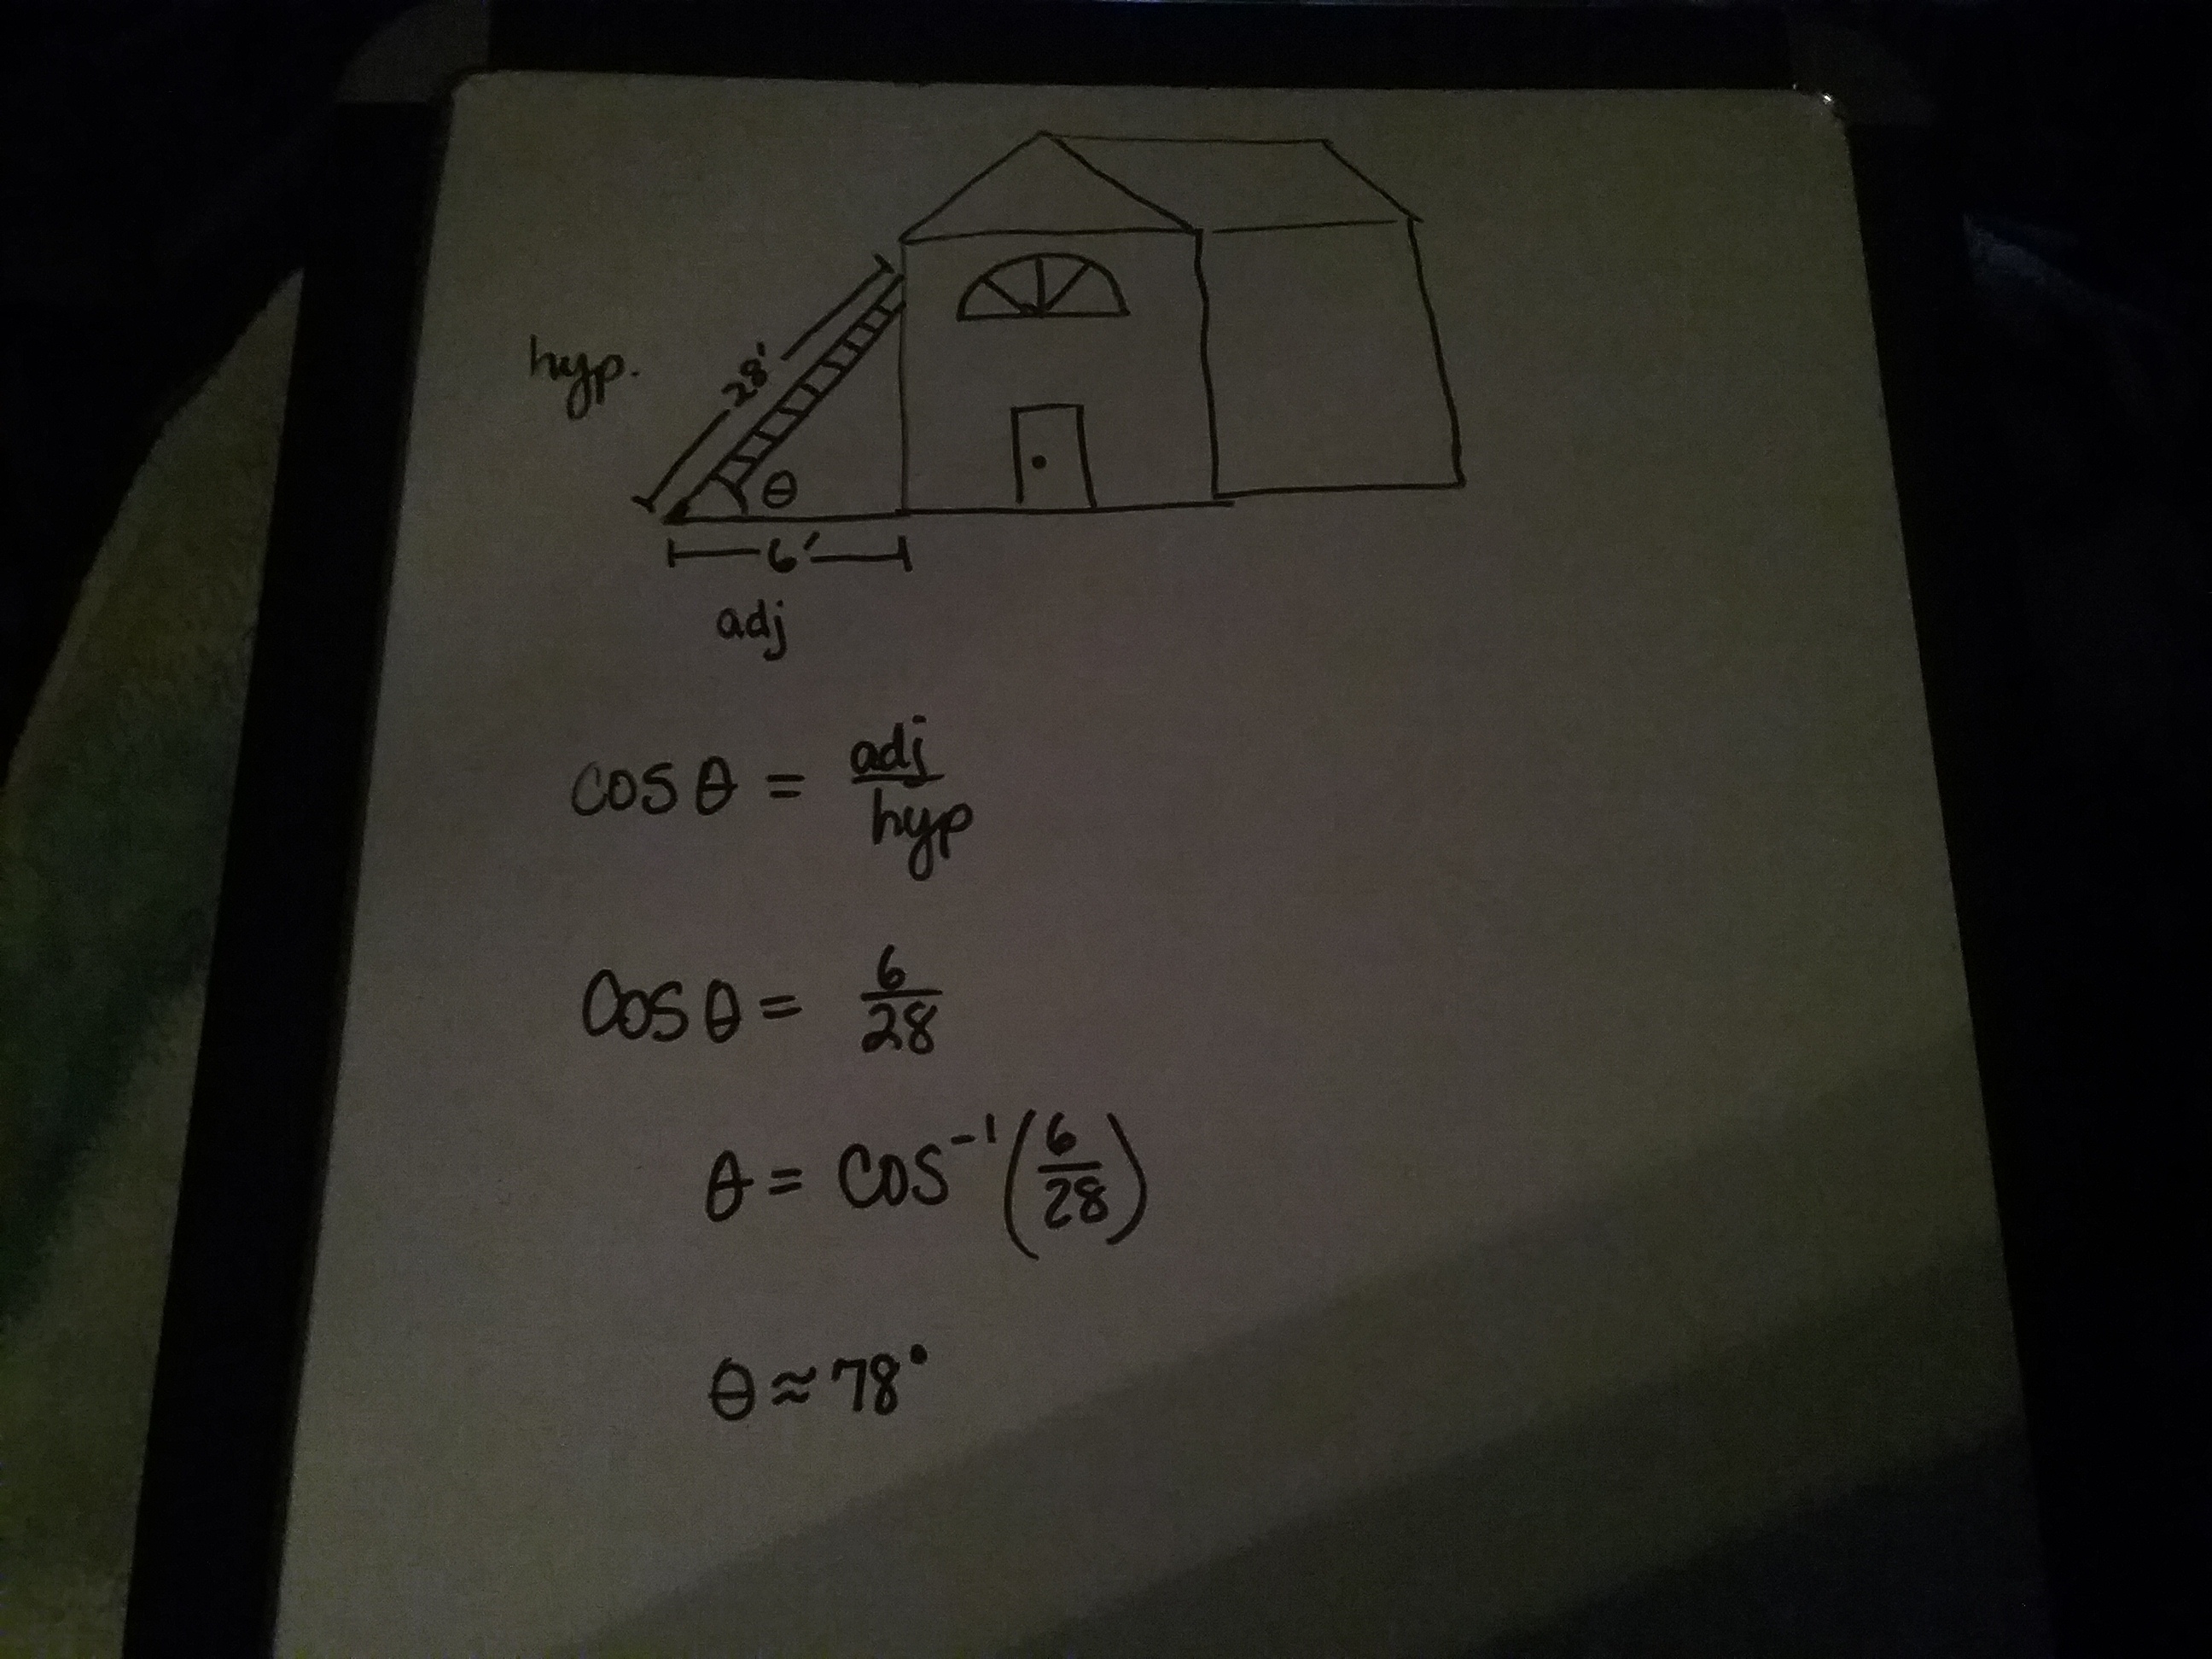 hyp.
28'
θ
6'
adj
cos θ = adj/hyp
cos θ = 6/28
θ = cos⁻¹(6/28)
θ ≈ 78°